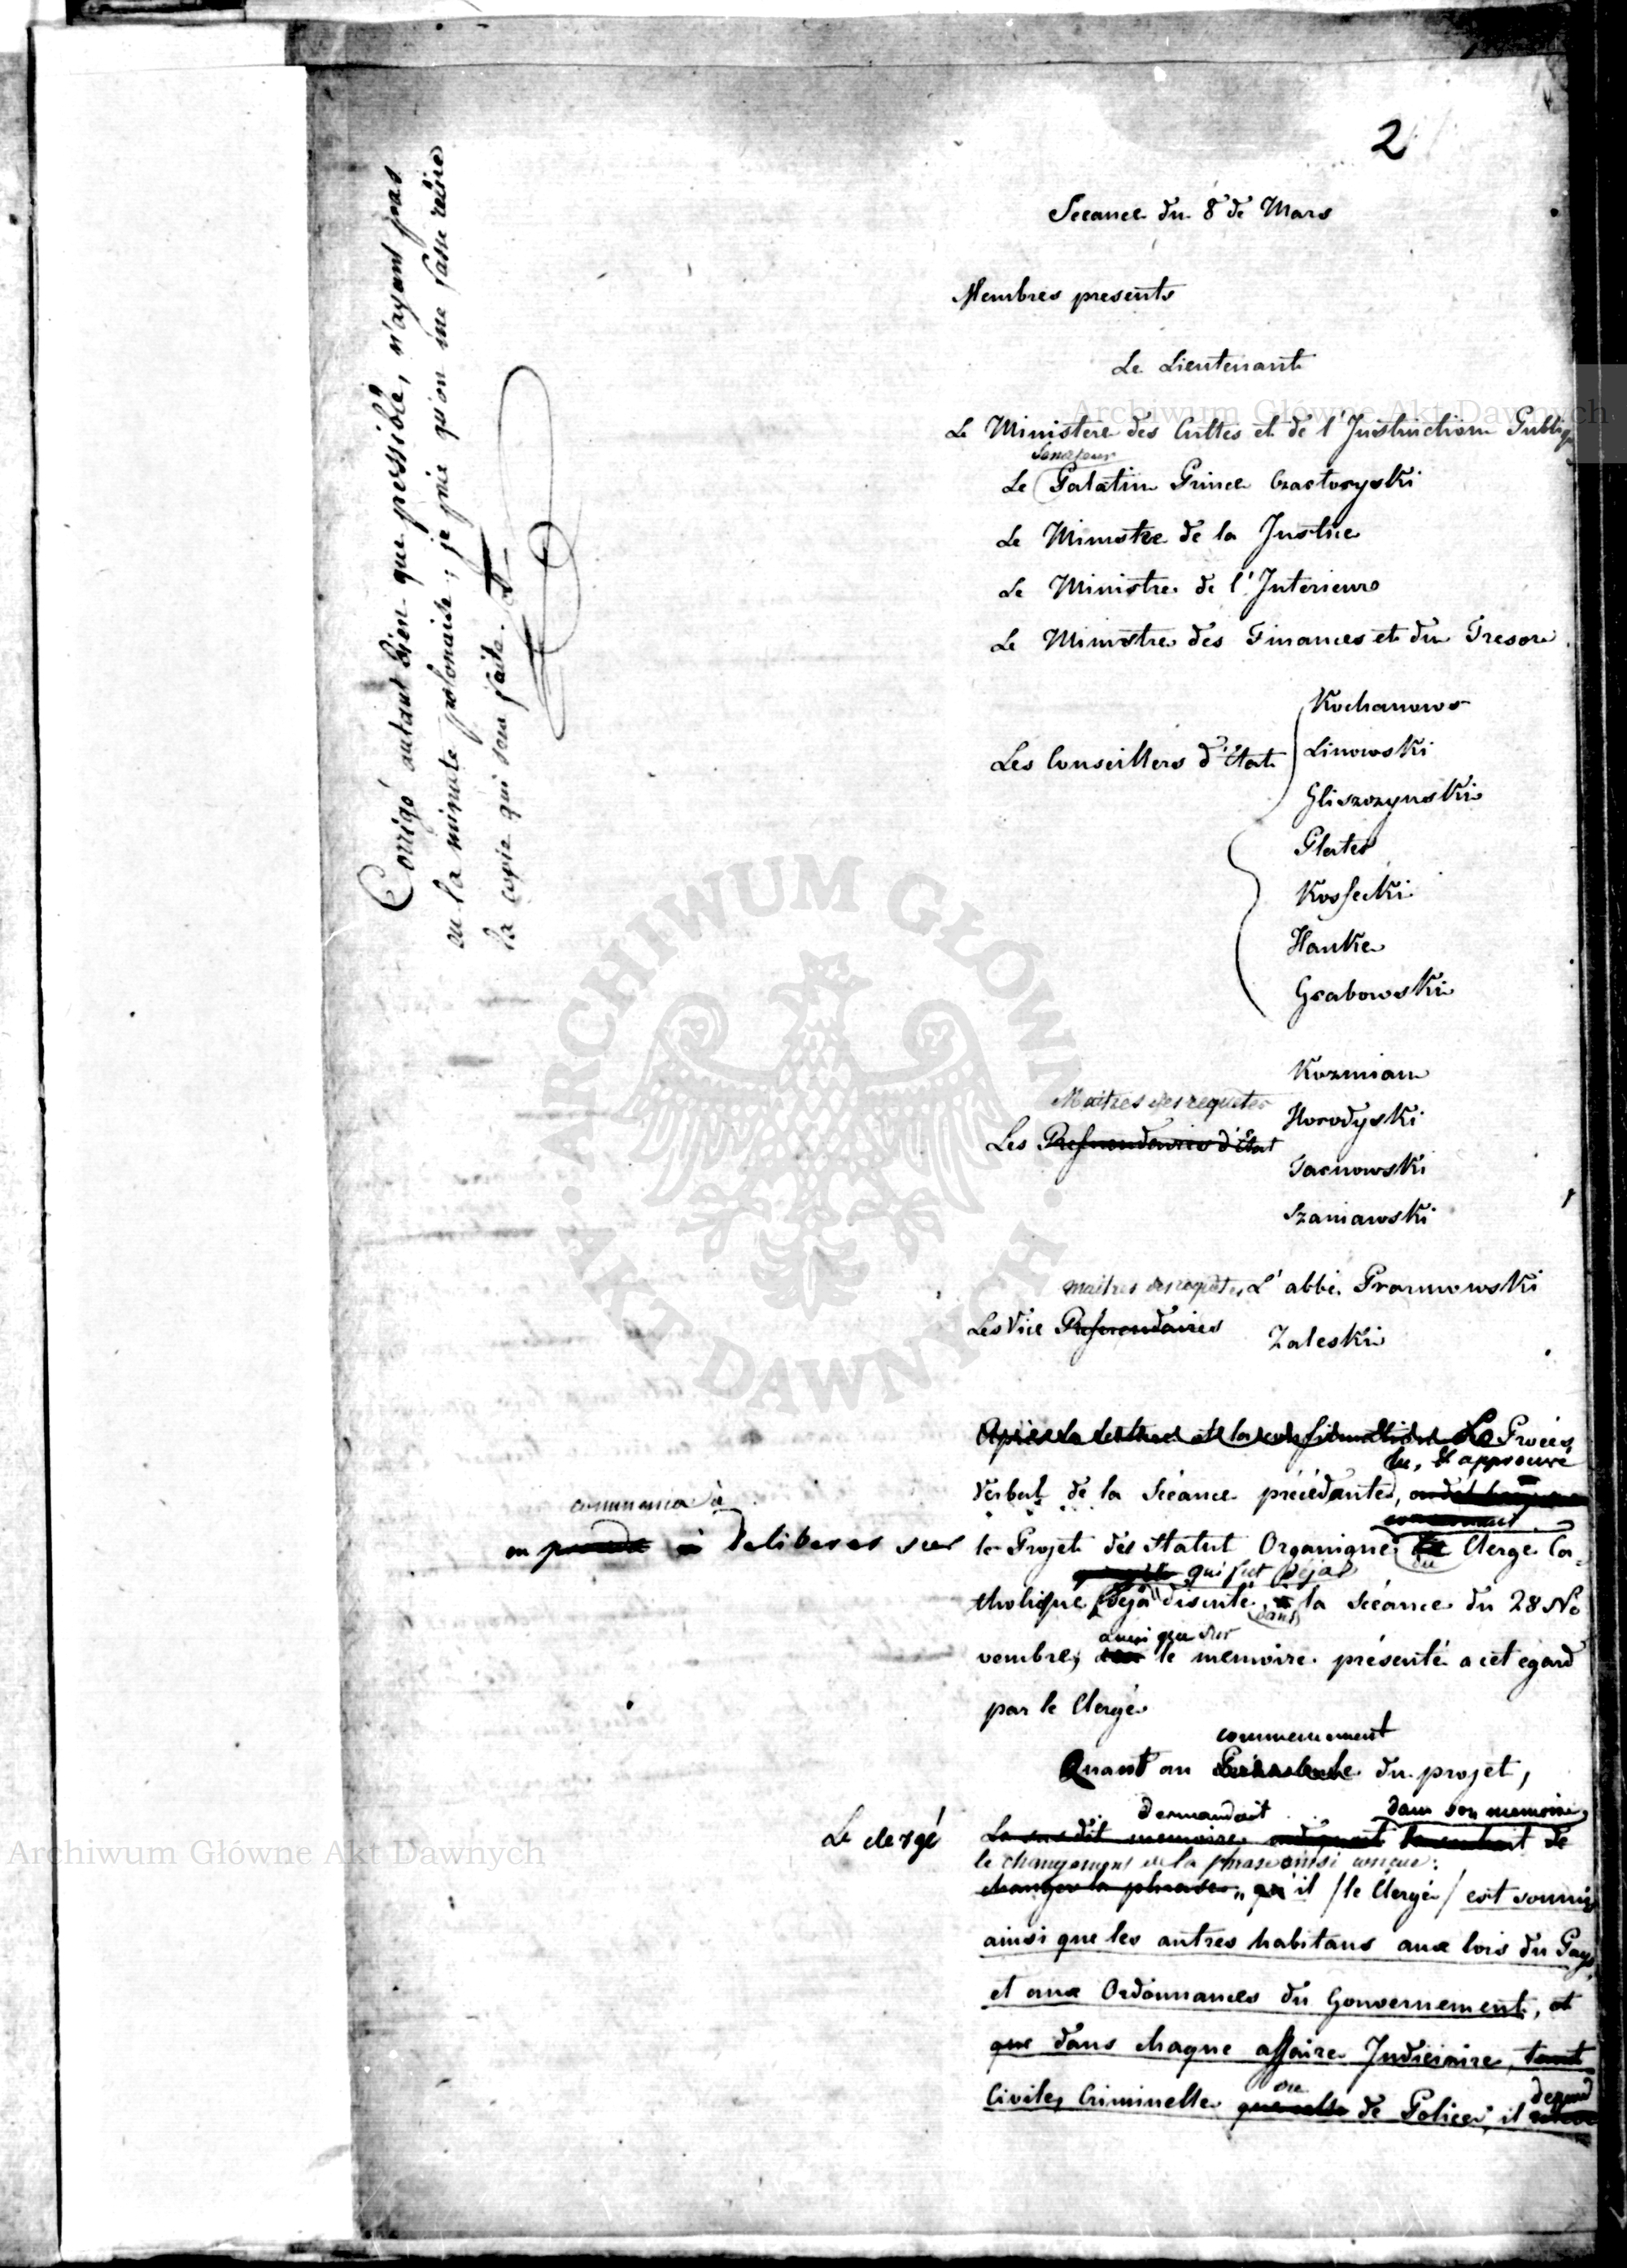 2
Seeance du 8 de Mars
Membres presents
Le Lieutenant
Le Ministere des Cultes et de l'Instruction Publiq
Senateur
Le Palatin Prince Czartoryski
Le Ministre de la Justice
Le Ministre de l'Interieur
Le Ministre des Finances et du Tresor
Kochanows
Les Conseillers d'Etat Linowski
Gliszczynski
Plater
Kossecki
Hauke
Grabowski
Kozmian
Maitres des requetes
Horodyski
Les Referendaires d'Etat
Tarnowski
Szaniawski
maitres des requetes L'abbé Prazmowski
Les Vice Referendaires
Zaleski
Après la lecture et la confirmation du Le Procès
lu, & approuvé
Verbal de la Séeance précédante,
commença à
concernant
on procéda à deliberer sur le Projet des Statut Organique du Clergé Ca-
qui fut déja
tholique déja discuté dans la Séeance du 28 No
ainsi que sur
vembre, le memoire présenté a cet egard
par le Clergé
commencement
Quant au Préambule du projet,
demandait dans son memoire,
Le clergé Le susdit memoire de
le changement de la phrase ainsi concue:
changer la phrase „qu'il /le Clergé/ est soumis
ainsi que les autres habitans aux lois du Pays
et aux Ordonnances du Gouvernement, et
que dans chaque affaire Judiciaire, tant
ou depend
Civile, Criminelle que celle de Police, il
Corrigé autant bien que possible, n'ayant pas
eu la minute polonaise; je prie qu'on me fasse relire
la copie qui sera faite.
Archiwum Główne Akt Dawnych
ARCHIWUM GŁÓWNE · AKT DAWNYCH ·
Archiwum Główne Akt Dawnych